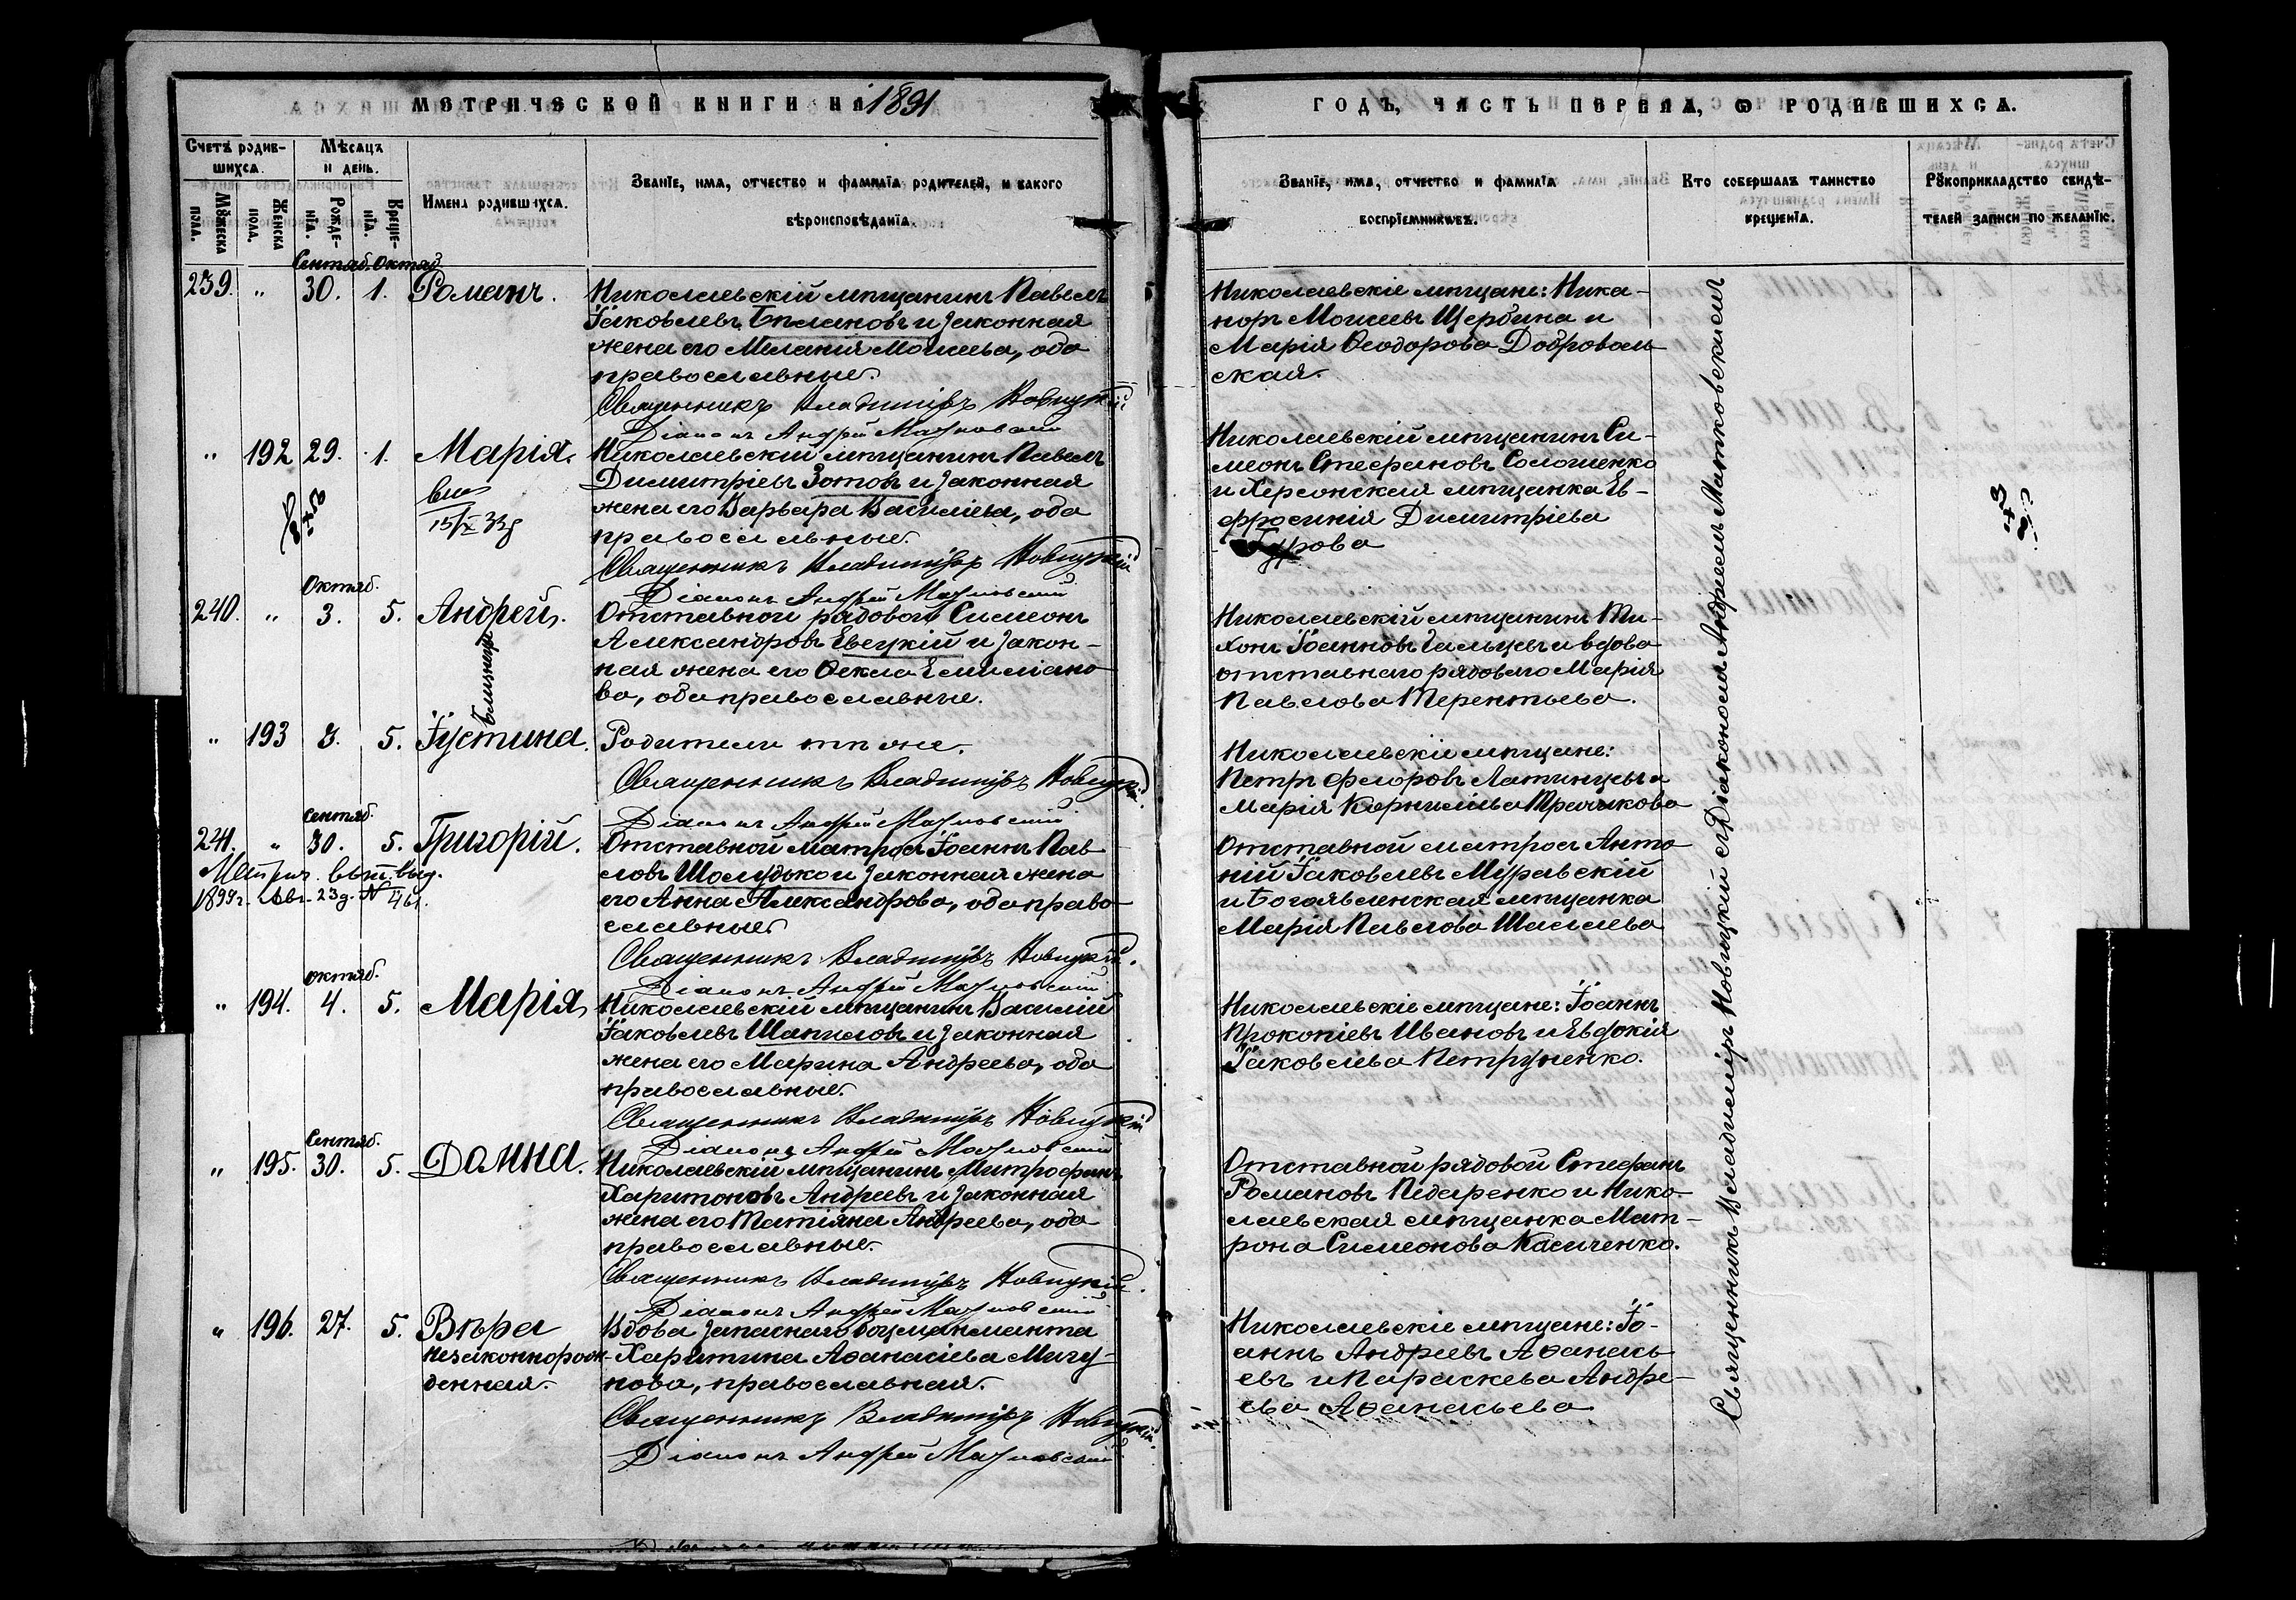 МЕТРИЧЕСКОЙ КНИГИ НА 1891
ГОДЪ, ЧАСТЬ ПЕРВАЯ, Ѡ РОДИВШИХСЯ.
Счетъ родив-
шихся.
Мѣсяцъ
и день.
Мꙋжеска
пола.
Женска
пола.
Рожде-
нїя.
Креще-
нїя.
Имена родившихся.
Званїе, имя, отчество и фамилїя родителей, и какого
вѣроисповѣданїя.
Званїе, имя, отчество и фамилїя
воспрїемниковъ.
Кто совершалъ таинство
крещенїя.
Рꙋкоприкладство свидѣ-
телей записи по желанїю.
Сентяб. Октяб.
239. " 30. 1. Романъ.
Николаевскій мѣщанинъ Павелъ
Іаковлевъ Бѣлановъ и законная
жена его Меланія Моисеева, оба
православные.
Священникъ Владиміръ Новицкій
Діаконъ Андрей
Николаевскіе мѣщане: Ника-
норъ Моисеевъ Щербина и
Марія Ѳеодорова Доброволь-
ская.
" 192 29. 1. Марія.
15/X 33г
Николаевскій мѣщанинъ Павелъ
Димитріевъ Зотовъ и законная
жена его Варвара Василіева, оба
православные.
Священникъ Владиміръ Новицкій
Діаконъ Андрей
Николаевскій мѣщанинъ Си-
меонъ Стефановъ Соломенко
и Херсонская мѣщанка Ев-
фросинія Димитріева
Гурова
Октяб.
240. " 3. 5. Андрей.
Близнецы
Отставной рядовой Симеонъ
Александровъ Евецкій и закон-
ная жена его Ѳекла Емиліано-
ва, оба православные.
Николаевскій мѣщанинъ Ти-
хонъ Іоанновъ Гальцевъ и вдова
отставнаго рядоваго Марія
Павлова Терентьева.
" 193 3. 5. Іустина.
Родители тѣ же.
Священникъ Владиміръ Новицкій
Діаконъ Андрей
Николаевскіе мѣщане:
Петръ Флоровъ Латинцевъ и
Марія Корниліева
Сентяб.
241. " 30. 5. Григорій.
Метрич. выд.
1899г. 23д. № 461.
Отставной матросъ Іоаннъ Пав-
ловъ Шолудько и законная жена
его Анна Александрова, оба право-
славные.
Священникъ Владиміръ Новицкій.
Діаконъ Андрей
Отставной матросъ Анто-
ній Іаковлевъ Муравскій
и Богоявленская мѣщанка
Марія Павлова
Октяб.
" 194. 4. 5. Марія.
Николаевскій мѣщанинъ Василій
Іаковлевъ Шапиловъ и законная
жена его Марина Андреева, оба
православные.
Священникъ Владиміръ Новицкій
Діаконъ Андрей
Николаевскіе мѣщане: Іоаннъ
Прокопіевъ Ивановъ и Евдокія
Іаковлева Петруненко.
Сентяб.
" 195. 30. 5. Домна.
Николаевскій мѣщанинъ Митрофанъ
Харитоновъ Андреевъ и законная
жена его Татіяна Андреева, оба
православные.
Священникъ Владиміръ Новицкій.
Діаконъ Андрей
Отставной рядовой Стефанъ
Романовъ Педаренко и Нико-
лаевская мѣщанка Мат-
рона Симеонова Касиченко.
" 196. 27. 5. Вѣра
незаконнорож-
денная.
Вдова запаснаго боцманманта
Харитина Аѳанасіева Мигу-
нова, православная.
Священникъ Владиміръ Новицкій.
Діаконъ Андрей
Николаевскіе мѣщане: Іо-
аннъ Андреевъ Аѳанась-
евъ и Параскева Андре-
ева Аѳанасьева
Священникъ Владиміръ Новицкій съ Діакономъ Андреемъ